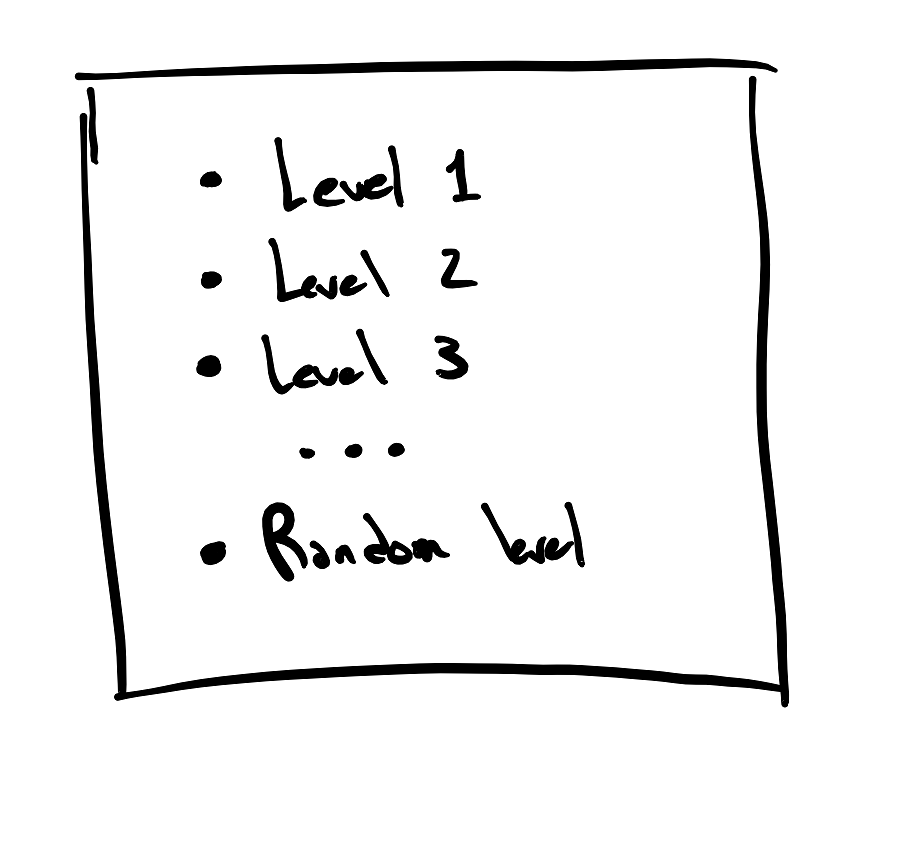 • Level 1
• Level 2
• Level 3
...
• Random level